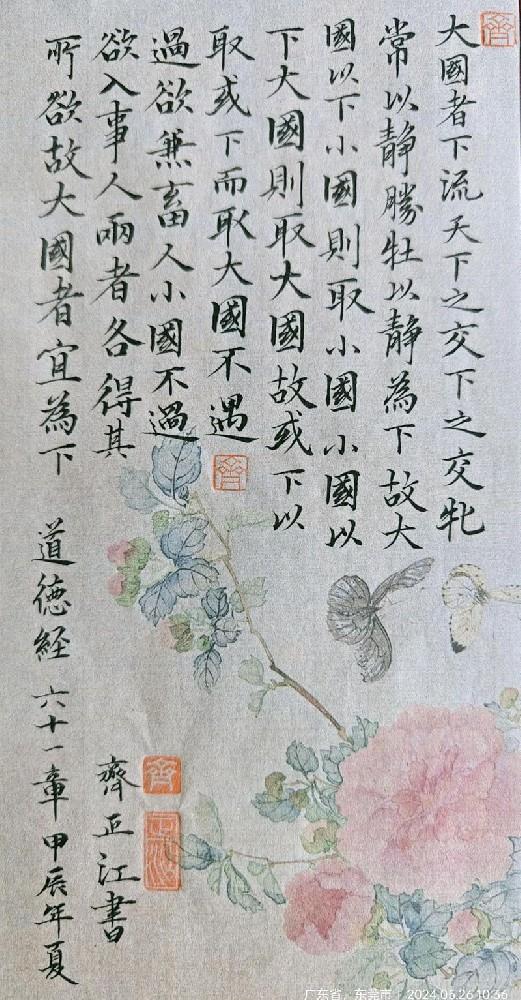 大國者下流天下之交下之交牝
常以靜勝牡以靜為下故大
國以下小國則取小國小國以
下大國則取大國故或下以
取或下而取大國不過
過欲兼畜人小國不過
欲入事人兩者各得其
所欲故大國者宜為下 道德經 六十一章 甲辰年夏
齊正江書
齊
齊
齊
广东省·东莞市 2024.05.26 10:36